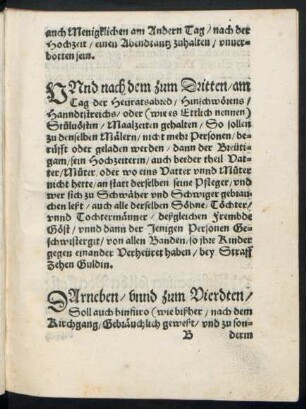 auch Menigklichen am Andern Tag / nach der
Hochzeit / einen Abendtantz zuhalten / vnuer-
botten sein.
VNnd nach dem zum Dritten / am
Tag der Heuratsabred / Hinschwörens /
Hanndtstreichs / oder (wie es Ettlich nennen)
Stůluösten / Maalzeiten gehalten / So sollen
zu denselben Mälern / nicht mehr Personen / be-
růfft oder geladen werden / dann der Breüti-
gam / sein Hochzeiterin / auch berder theil Vat-
ter / Můter / oder wo eins Vatter vnnd Můter
nicht hette / an statt derselben seine Pfleger / vnd
wer sich zu Schwäher vnd Schwiger gebrau-
chen lest / auch alle derselben Söhne / Töchter /
vnnd Tochtermänner / deßgleichen Frembde
Göst / vnnd dann der Jenigen Personen Ge-
schwistergit / von allen Banden / so ihre Kinder
gegen einander Verheüret haben / bey Straff
Zehen Guldin.
DArneben / vnnd zum Vierdten /
Soll auch hinfüro (wie bißher / nach dem
Kirchgang / Gebräuchlich geweßt / vnd zu son-
B derm